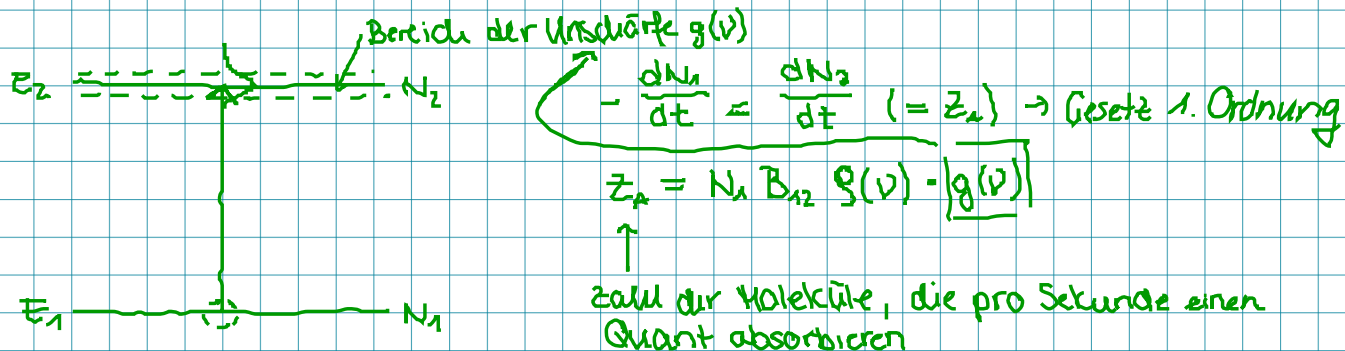 Bereich der Unschärfe g(ν)
E₂ N₂
- dN₁/dt = dN₂/dt (= Z₁) → Gesetz 1. Ordnung
Z_A = N₁ B₁₂ ρ(ν) · g(ν)
E₁ N₁
Zahl der Moleküle, die pro Sekunde einen
Quant absorbieren